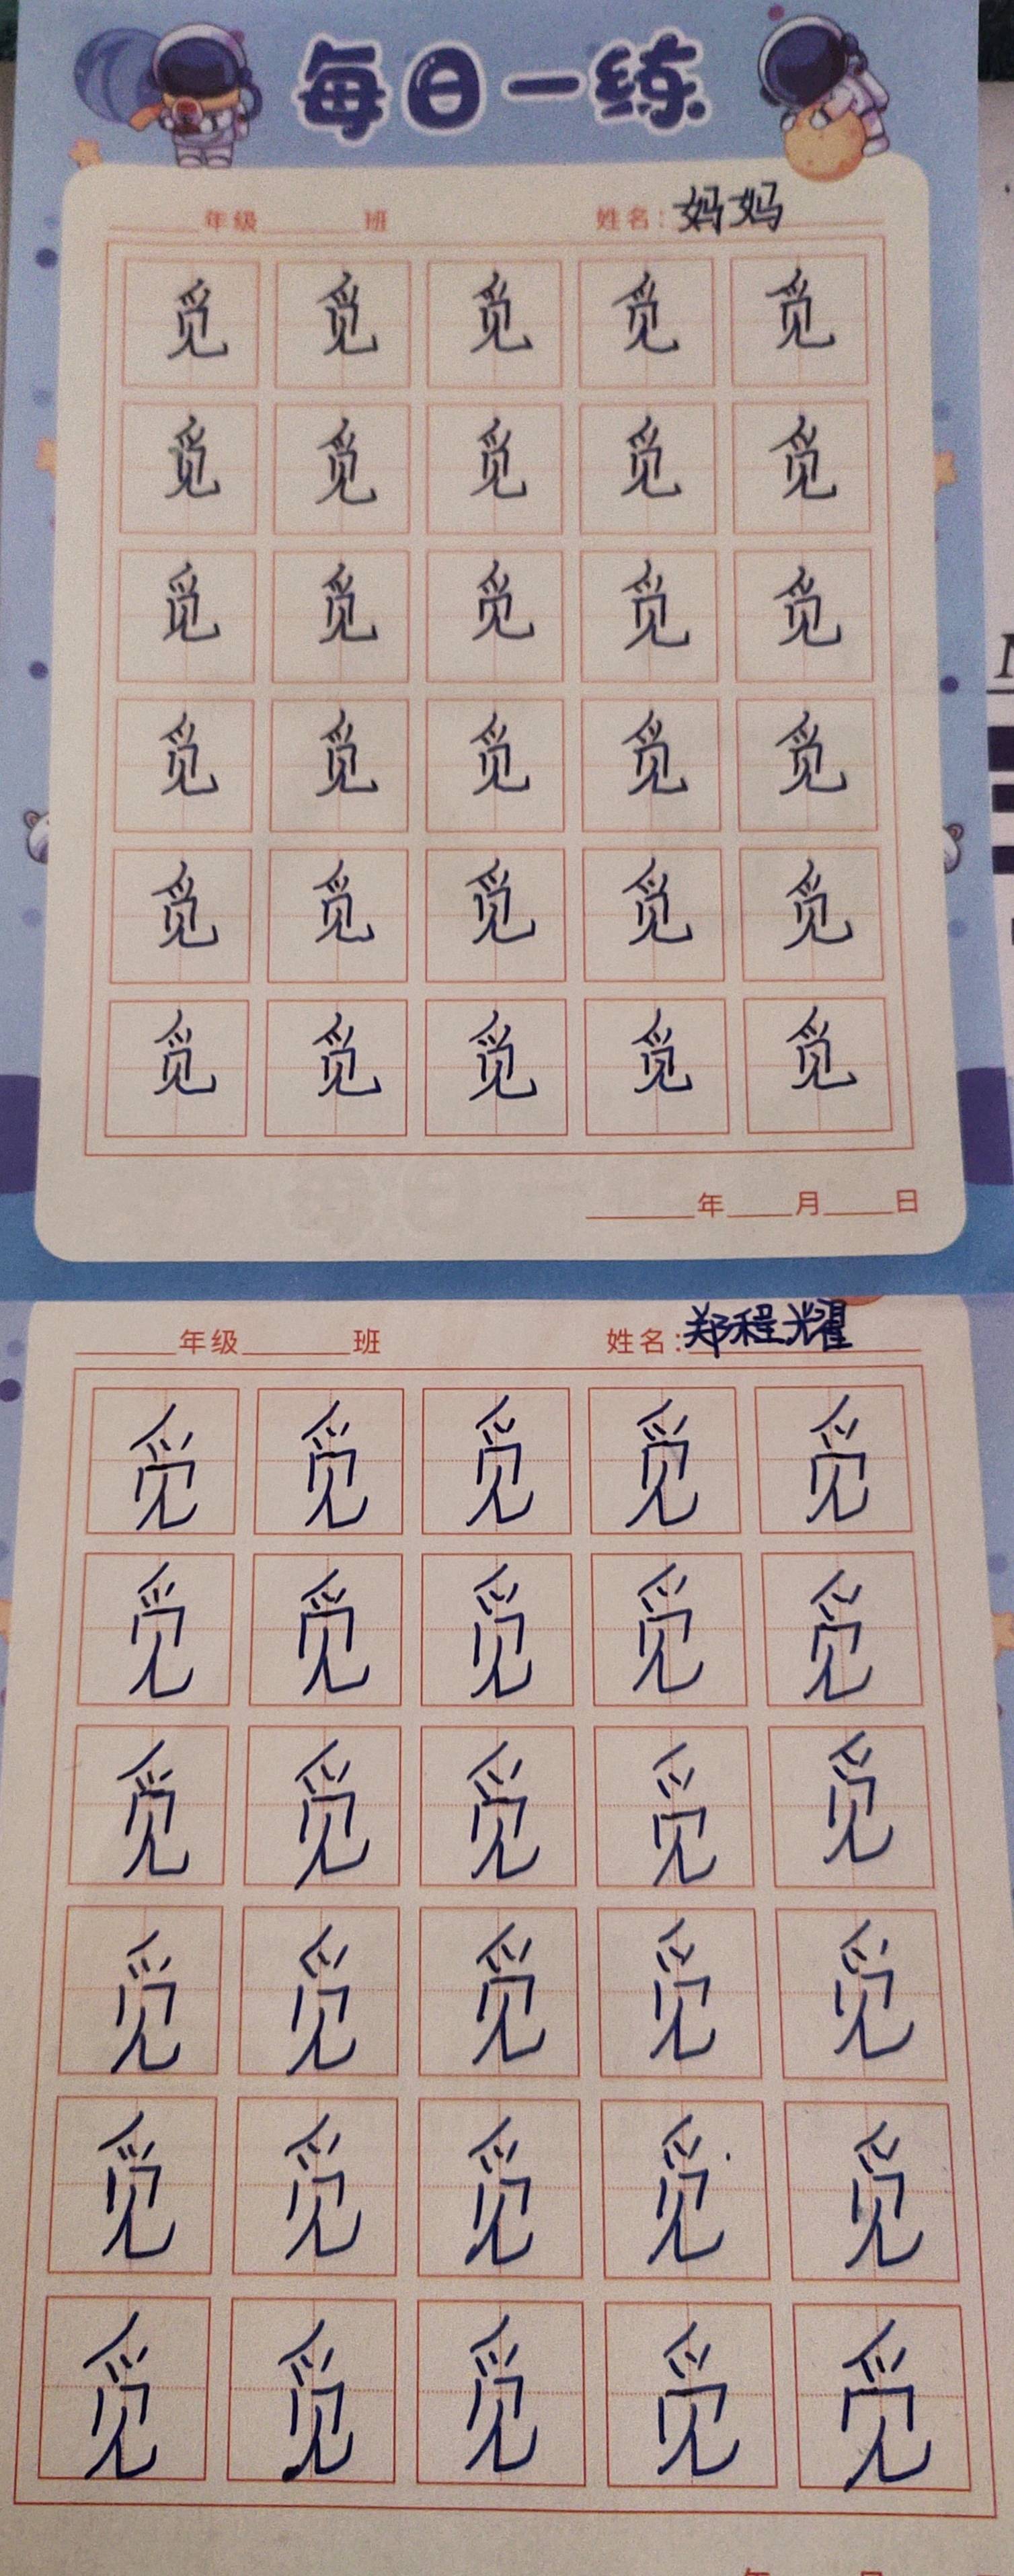 每日一练
年级 班 姓名：妈妈
觅 觅 觅 觅 觅
觅 觅 觅 觅 觅
觅 觅 觅 觅 觅
觅 觅 觅 觅 觅
觅 觅 觅 觅 觅
觅 觅 觅 觅 觅
年 月 日
年级 班 姓名：郑程耀
觅 觅 觅 觅 觅
觅 觅 觅 觅 觅
觅 觅 觅 觅 觅
觅 觅 觅 觅 觅
觅 觅 觅 觅 觅
觅 觅 觅 觅 觅